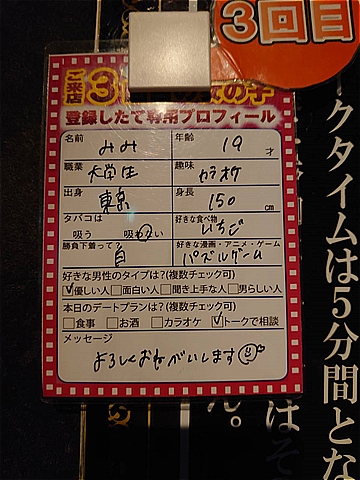 3回目
ご来店3
の女の子
登録したて専用プロフィール
名前 みみ
年齢 19才
職業 大学生
趣味 カラオケ
出身 東京
身長 150cm
タバコは 吸う 吸わない
好きな食べ物 いちご
勝負下着って? 白
好きな漫画・アニメ・ゲーム パズルゲーム
好きな男性のタイプは?(複数チェック可)
☑優しい人 □面白い人 □聞き上手な人 □男らしい人
本日のデートプランは?(複数チェック可)
□食事 □お酒 □カラオケ ☑トークで相談
メッセージ
よろしくおねがいします
クタイムは5分間とな
はそ
ん。